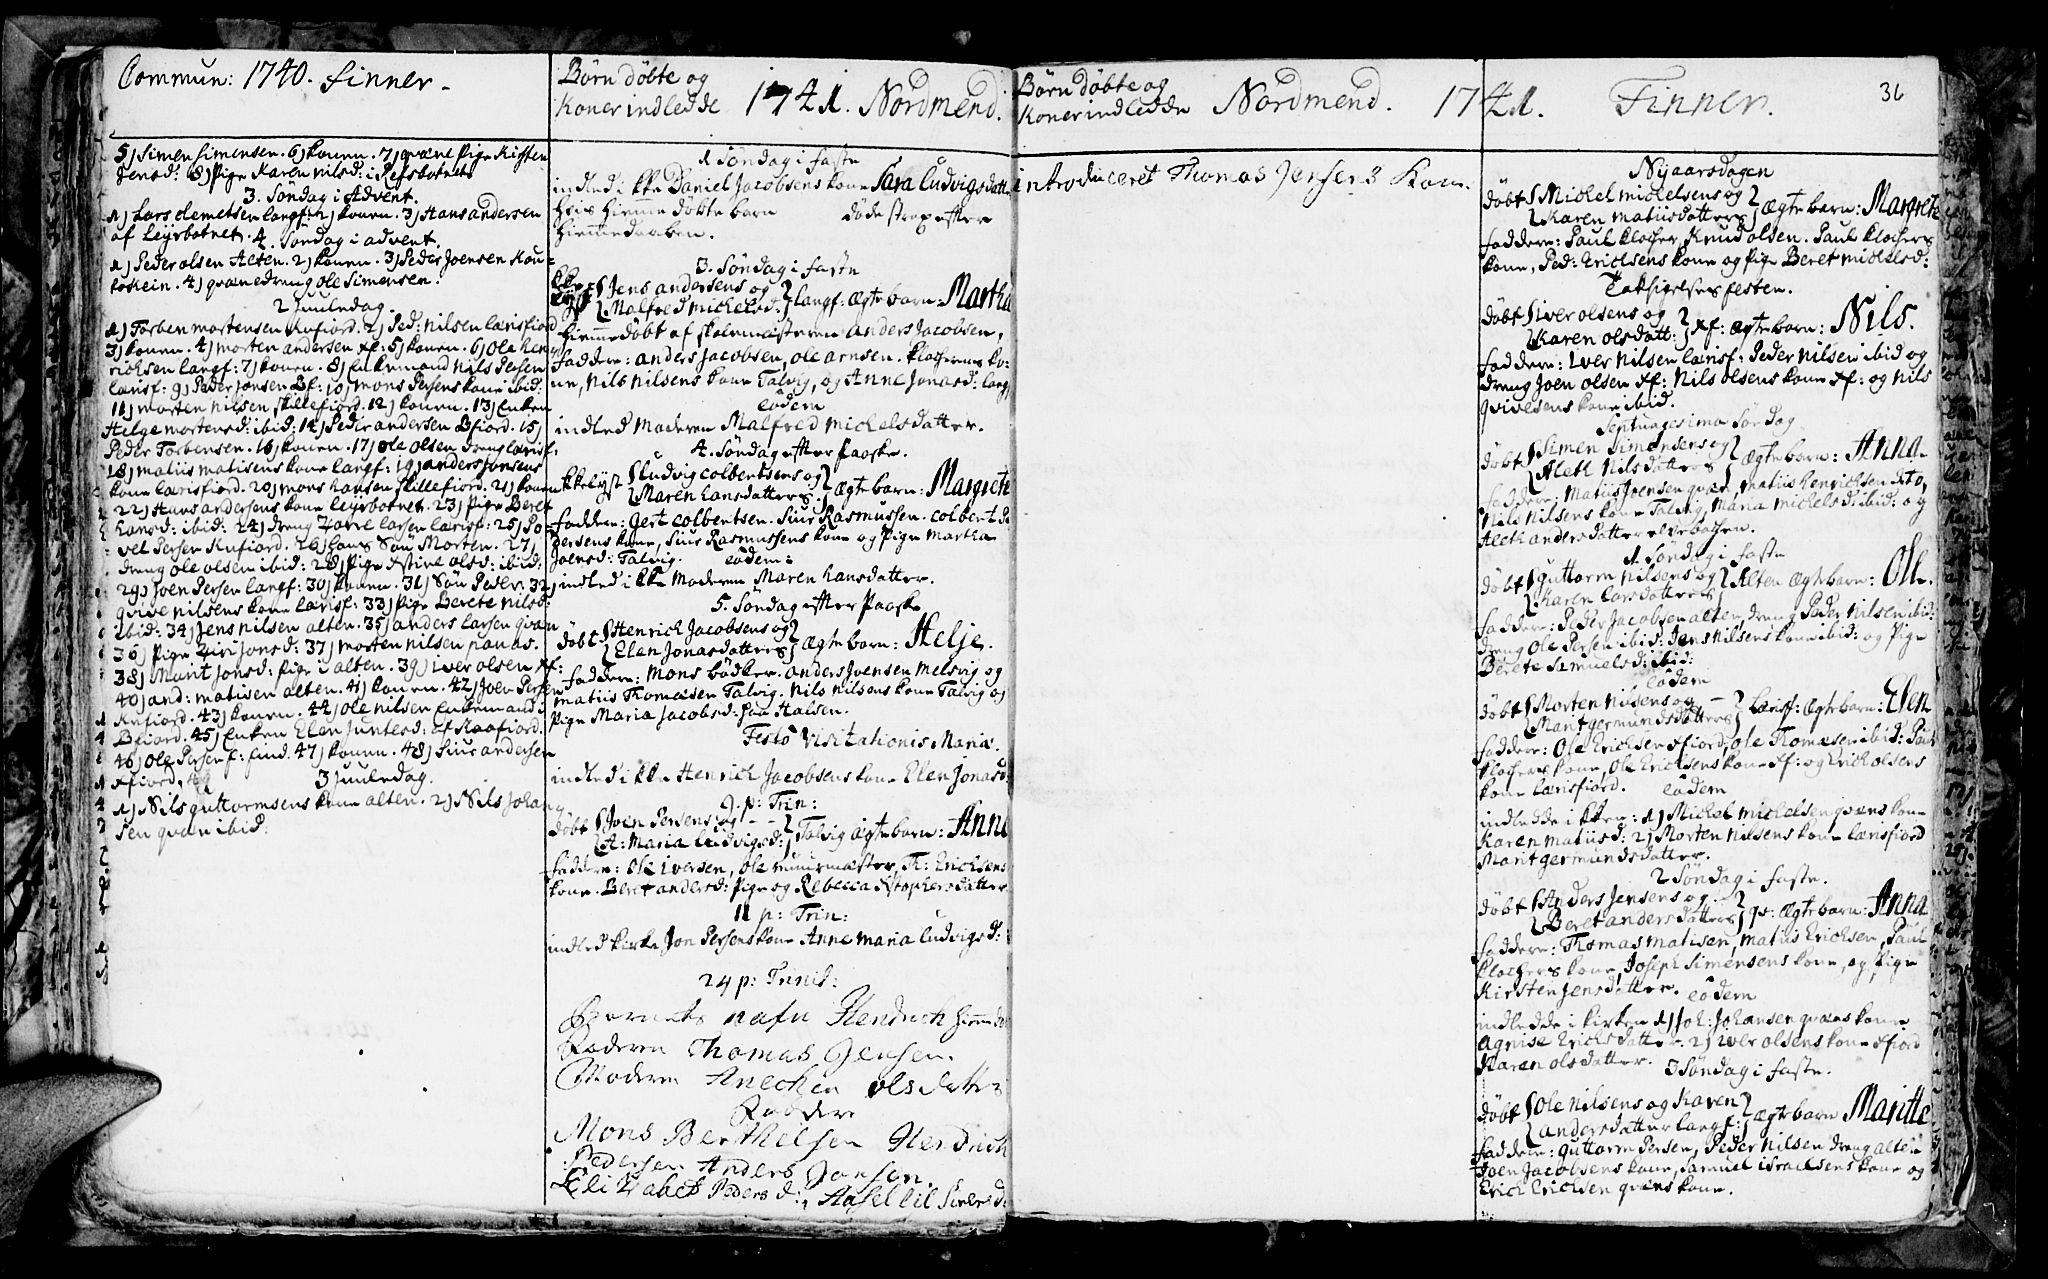 Commun: 1740. Finner.
5) Simen Simensen. 6) konen. 7) qvæne pige Kisten
Jensd: 8) pige Karen Nilsd: i Refsbotnet
3. Söndag i Advent.
1) Lars Clemetsen langf: 2) konen. 3) Hans andersen
af Leyrbotnet. 4. Söndag i advent.
1) Peder olsen Alten. 2) konen. 3) Peder Joensen Kou-
tokein. 4) qvænedreng ole Simensen.
2 Juuledag.
1) Torben mortensen Kufiord. 2) Ped: Nilsen lærisfiord
3) konen. 4) morten andersen xf: 5) konen. 6) Ole Hen-
richsen langf: 7) konen. 8) Enkemand Nils Persen
lærisf: 9) Peder Jonsen Bf: 10) mons Persens kone ibid:
11) morten Nilsen skillefiord. 12) konen. 13) Enken
Helge mortensd: ibid: 14) Peder andersen Bfiord. 15)
Peder Torbensen. 16) konen. 17) ole olsen dreng lærisf:
18) matiis matisens kone langf: 19) anders Jonsens
kone lærisfiord. 20) mons hansen skillefiord. 21) konen
22) Hans andersens kone leyrbotnet. 23) pige Beret
hansd: ibid: 24) dreng larsen lærisf: 25) Po-
vel Persen Kufiord. 26) hans Sön Morten. 27)
dreng ole olsen ibid: 28) pige olsd: ibid:
29) Joen Persen langf: 30) konen. 31) Sön Peder. 32)
qvive nilsens kone lærisf: 33) pige Berete Nilsd:
ibid: 34) Jens Nilsen alten. 35) anders larsen qvæn
36) pige Jonsd: 37) morten Nilsen
38) Marit Jonsd: pige i alten. 39) iver olsen xf:
40) and: matisen alten. 41) konen. 42) Joen Persen
Kufiord. 43) konen. 44) ole Nilsen Enkemand i
Bfiord. 45) Enken Elen af Kaafiord.
46) ole Persen f: find. 47) konen. 48) Siur andersen
xfiord.
3 Juuledag.
1) Nils guttormsens kone alten. 2) Nils Johan-
sen qvæn ibid:
Börn döbte og
Koner indledde 1741. Nordmend.
1 Söndag i faste
indled i kke Daniel Jacobsens kone Sara Ludvigsdatt:
hvis hieme döbte barn döde strax efter
hieme daaben.
3. Söndag i faste
Jens andersens og
Malfred michelsd: langf: Ægte barn: Martha
hieme döbt af skolemesteren anders Jacobsen,
faddere: anders Jacobsen, ole arnsen. klocherens ko-
ne, Nils Nilsens kone Talvig, og Anne Jonasd: lang
eodem
indled moderen Malfred michelsdatter.
4. Söndag efter Paaske.
kkelyst Ludvig colbertsens og
Maren hansdatters Ægte barn: Margrete
faddere: gert colbertsen. Siur Rasmussen. colbert P
dersens kone, Siur Rasmussens kone og pige martha
Joensd: Talvig. eodem:
indled i kke moderen Maren hansdatter.
5. Söndag efter Paaske
döbt Henrich Jacobsens og
Elen Jonasdatters Ægte barn: Helje.
faddere: Mons bödker. anders Joensen melsvig og
matiis Thomæsen Talvig. Nils Nilsens kone Talvig og
pige Maria Jacobsd: paa Halsen.
Festo visitationis Mariæ.
indled i kke Henrich Jacobsens kone Elen Jonasd:
9. p: Trin:
döbt Joen Persens og
A: Maria ludvigsd: Talvig ægte barn: Anne
faddere: ole iversen, ole muurmæster, Th: Erichsens
kone. Beret andersd: pige og Rebecca xstophersdatter
11 p: Trin:
indled kirke Jon Persens kone Anne maria ludvigsd:
24 p: Trinit:
Barnets nafn Hendrich hieme dö
Faderen Thomas Jensen.
Moderen Anechen olsdatter
Faddere
Mons Berthelsen Hendrich
Pedersen Anders Jonsen.
Elizabet Peders d:, Aasel lil Siversd:
Börn döbte og
Koner indledde Nordmend. 1741. Finner. 36
introduceret Thomas Jensens Kone.
Nyaarsdagen
döbt Michel michelsens og
Karen matiisdatters Ægte barn: Margrete
faddere: Paul klocher, Knud olsen. Paul klochers
kone, Ped: Erichsens kone og pige Beret michelsd:
Taksigelses festen.
döbt iver olsens og
Karen olsdatt: xf: Ægte barn: Nils.
faddere: iver Nilsen lærisf: Peder Nilsen ibid og
dreng Joen olsen xf: Nils olsens kone xf: og Nils
qvivesens kone ibid.
Septuagesima Söndag
döbt Simen Simensens og
Aleth Nilsdatters Ægte barn: Anna
faddere: Matiis Joensen qvæn, matiis henrichsen dito,
Nils Nilsens kone Talvig, Maria michelsd: ibid: og
Aleth andersdatter elvebachen.
1 Söndag i faste
döbt guttorm Nilsens og
Karen larsdatters Alten Ægte barn: Ole.
faddere: Peder Jacobsen alten, dreng Peder Nilsen ibid:
dreng ole Persen ibid: Jens Nilsens kone ibid: og pige
Berete Samuelsd: ibid:
eodem
döbt Morten Nilsens og
Marit germundsdatters lærisf: Ægte barn: Elen
faddere: Ole Erichsen xfiord, ole Thomæsen ibid: Paul
klochers kone, ole Erichsens kone xf: og Erich olsens
kone lærisfiord. eodem
indledde i kken: 1) Michel michelsen qvæns kone
Karen matiisd: 2) Morten Nilsens kone lærisfiord
Marit germundsdatter.
2 Söndag i faste.
döbt Anders Jensens og
Beret andersdatters qv: Ægte barn: Anna
faddere: Thomas matisen, matiis Erichsen, Paul
klochers kone, Joseph Simensens kone, og pige
Kirsten Jensdatter. eodem
indledde i kirken 1) Joh: Johansen qvæns kone
Agnise Erichsdatter. 2) iver olsens kone xfiord
Karen olsdatter. 3 Söndag i faste.
döbt Ole Nilsens og Karen
andersdatter langf: Ægte barn Maritte
faddere: guttorm Persen, Peder Nilsen dreng alten
Joen Jacobsens kone, Samuel israelsens kone og
Erich Erichsen qvæns kone.